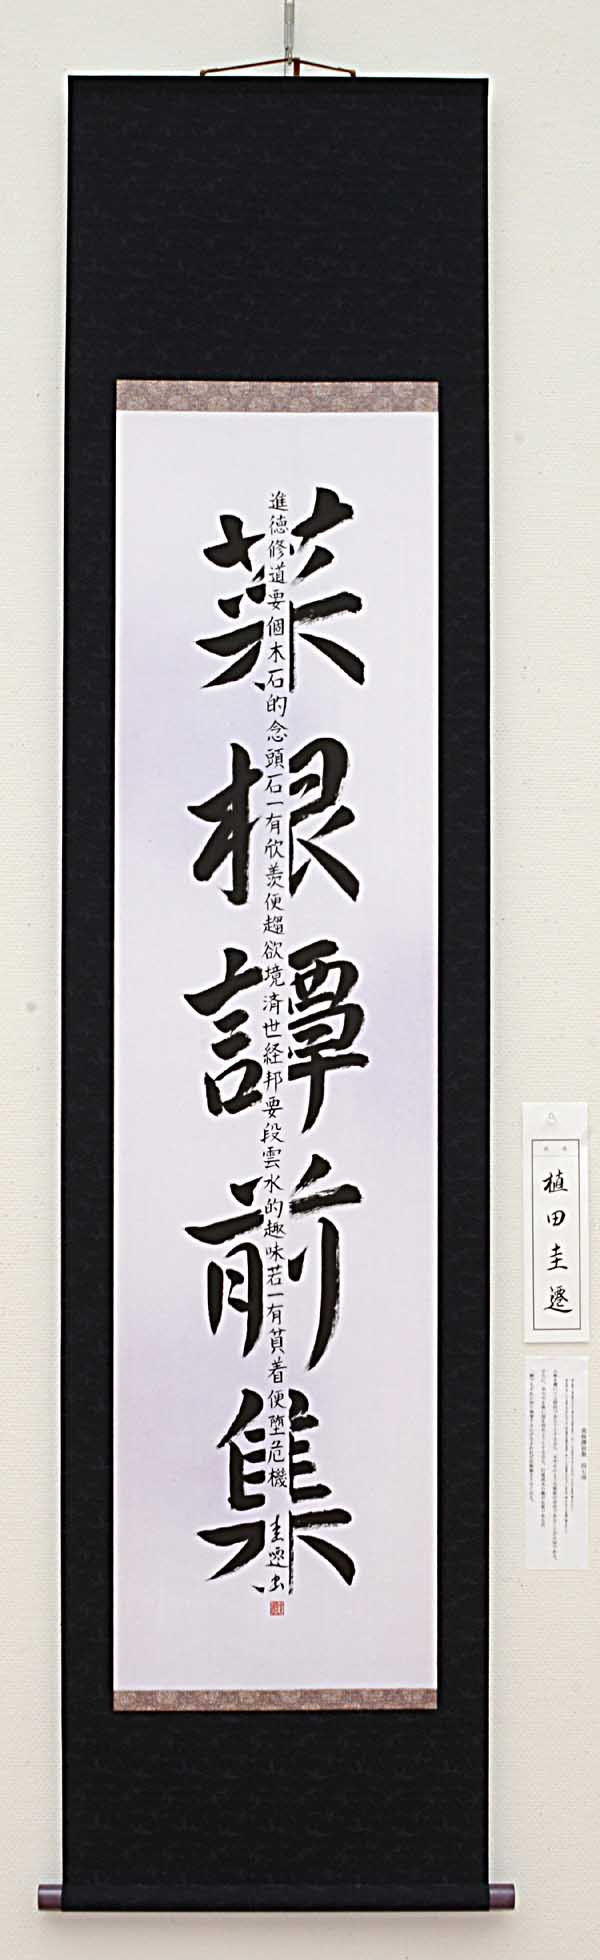 菜根譚前集
進徳修道要個木石的念頭石一有欣羨便趨欲境済世経邦要段雲水的趣味若一有貧着便墮危機
圭遷書
植田圭遷